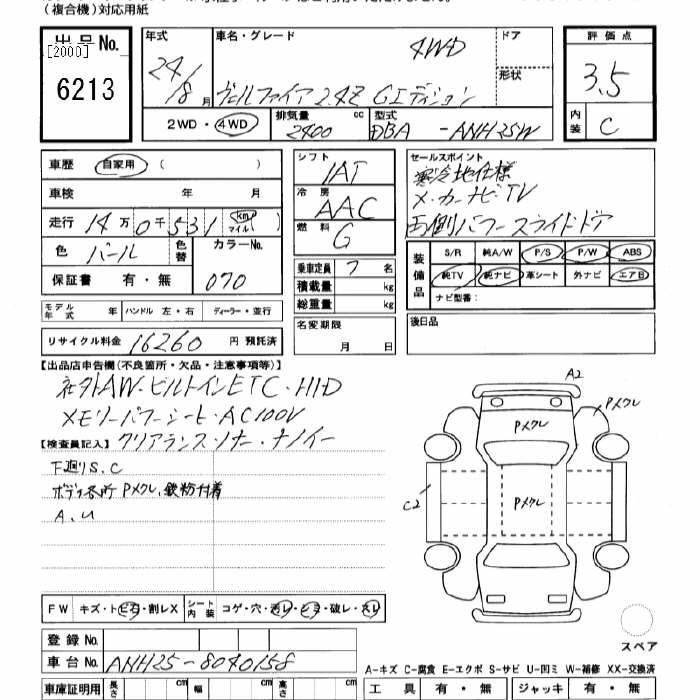 (複合機)対応用紙
出品No.
[2000]
6213
年式 24/8月
車名・グレード 4WD
ヴェルファイア 2.4Z Gエディション
ドア
形状
評価点
3.5
内装 C
2WD・4WD
排気量 2400 cc
型式 DBA - ANH25W
車歴 自家用 ( )
車検 年 月
走行 14万0千531 km マイル ( )
色 パール 色替 カラーNo. 070
保証書 有・無
モデル年式 年 ハンドル 左・右 ディーラー・並行
リサイクル料金 16260 円 預託済
シフト IAT
冷房 AAC
燃料 G
乗車定員 7 名
積載量 kg
総重量 kg
名変期限
月 日
セールスポイント
寒冷地仕様
メ・カーナビ・TV
両側パワースライドドア
装備品 S/R 純A/W P/S P/W ABS
純TV 純ナビ 革シート 外ナビ エアB
ナビ型番:
後日品
【出品店申告欄(不良箇所・欠品・注意事項等)】
社外AW・ビルトインETC・HID
メモリーパワーシート・AC100V
クリアランスソナー・ナノイー
【検査員記入】
下廻りS.C
ボディ各所 Pメクレ、鉄粉付着
A.U
A2
Pメクレ
Pメクレ
C2
Pメクレ
スペア
FW キズ・トビ石・割レX シート内装 コゲ・穴・汚レ・シミ・破レ・スレ
登録No.
車台No. ANH25-8040158
車庫証明用 長さ cm 幅 cm 高さ cm
A-キズ C-腐食 E-エクボ S-サビ U-凹ミ W-補修 XX-交換済
工具 有・無 ジャッキ 有・無